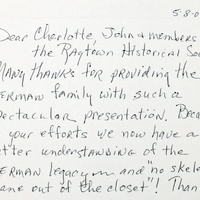 5-8-0
Dear Charlotte, John & members
the Raytown Historical Soc
Many thanks for providing the
ERMAN family with such a
ectacular presentation. Beca
your efforts we now have a
tter understanding of the
ERMAN legacy and "no skele
ame out of the closet"! Than